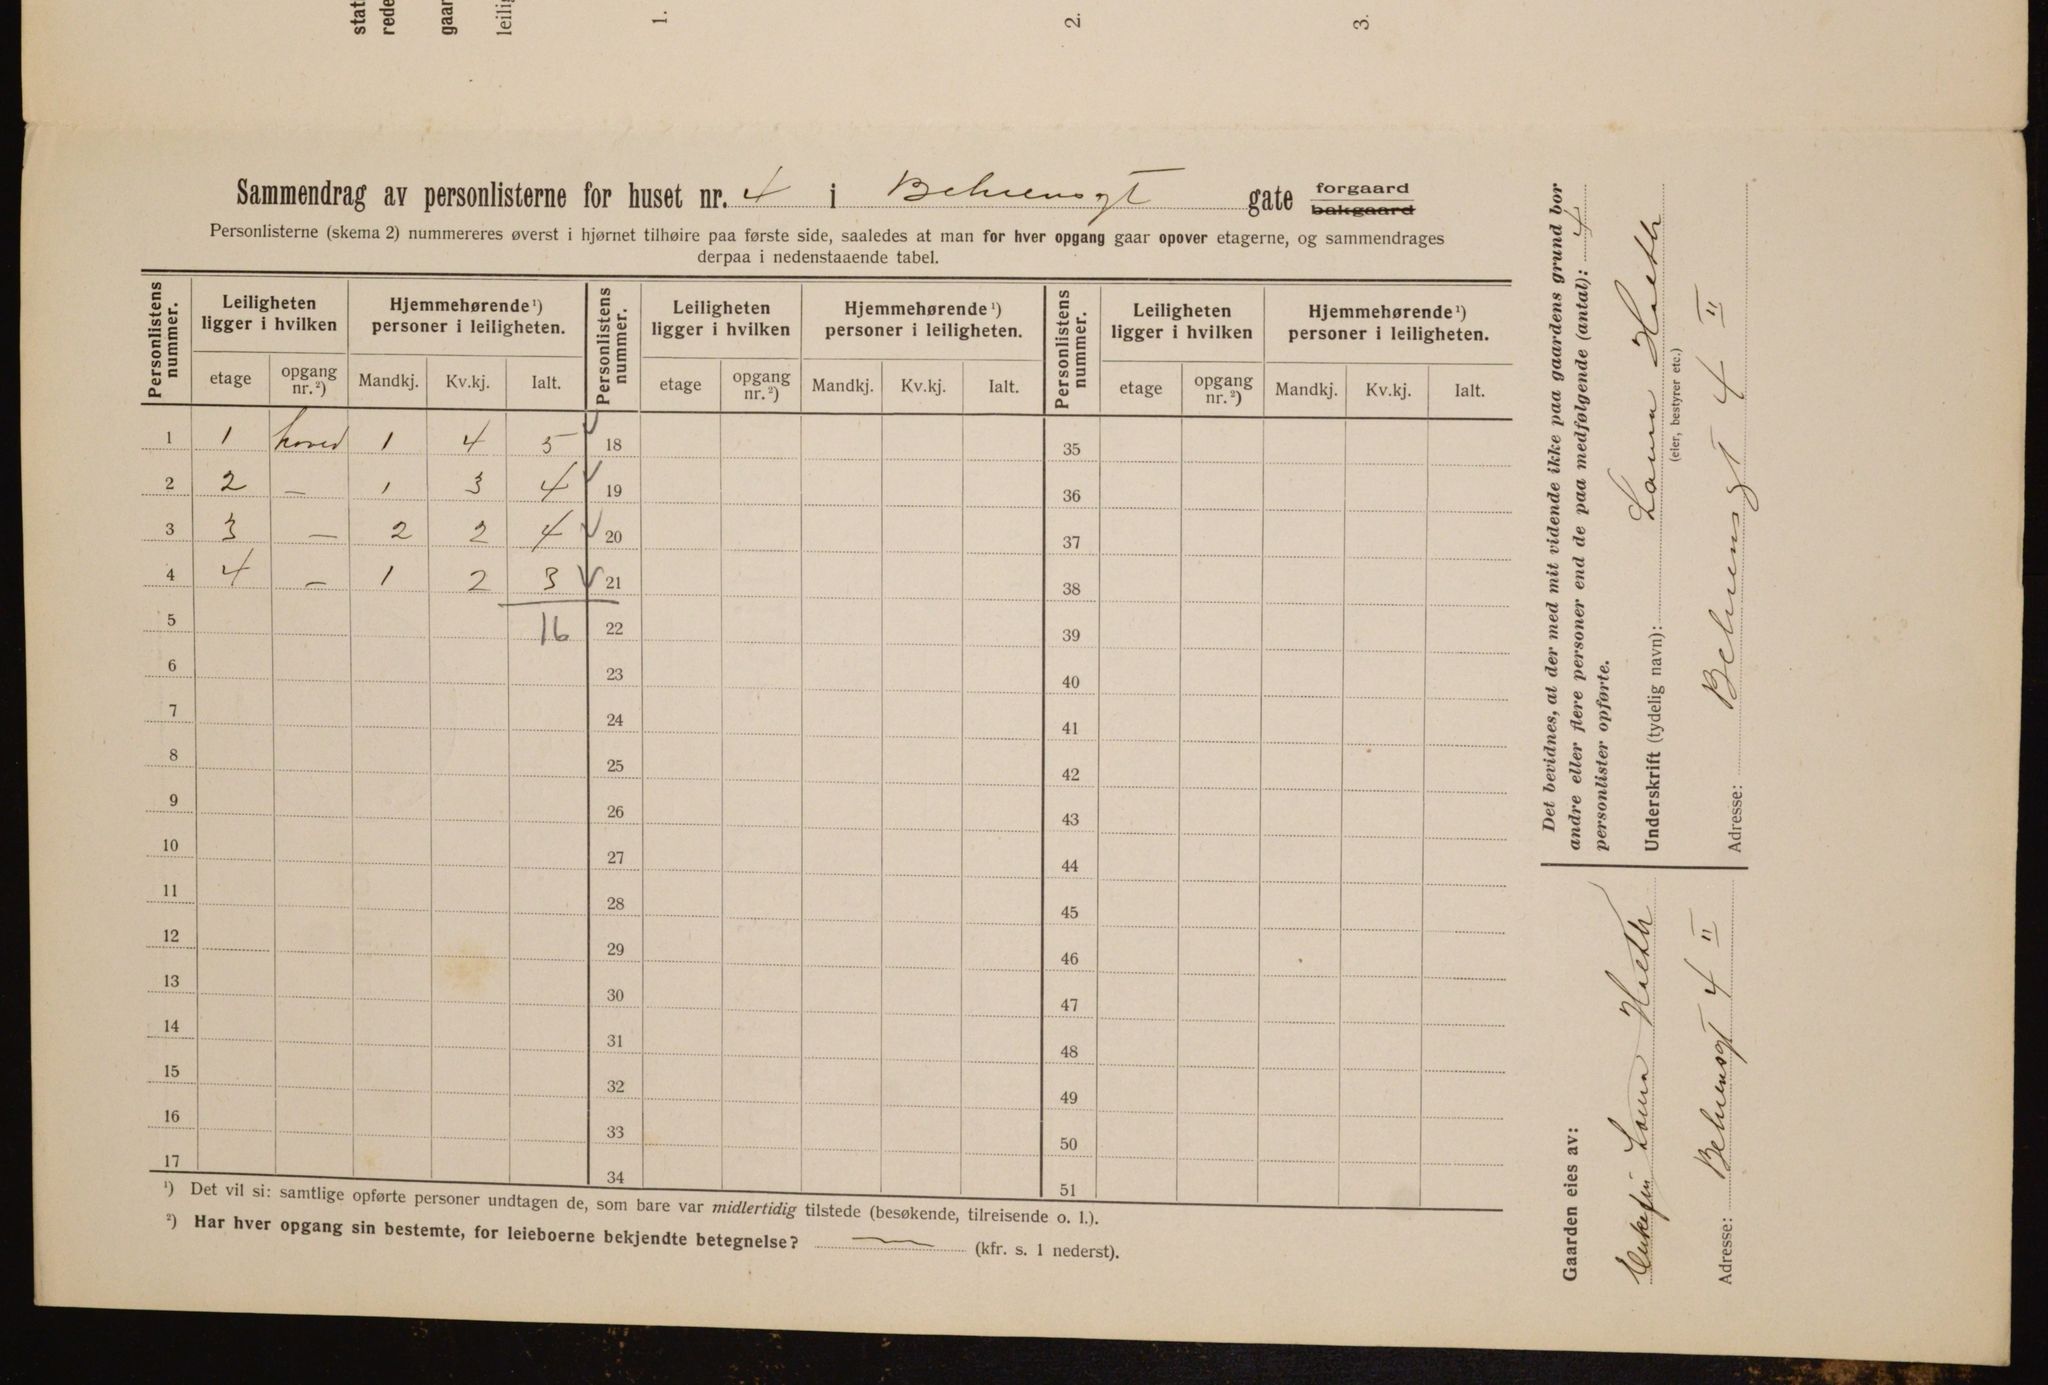 stat
rede
gaar
leilig
1.
2.
3.
Sammendrag av personlisterne for huset nr. 4 i Behrensgt gate forgaard bakgaard
Personlisterne (skema 2) nummereres øverst i hjørnet tilhøire paa første side, saaledes at man for hver opgang gaar opover etagerne, og sammendrages
derpaa i nedenstaaende tabel.
Personlistens nummer. Leiligheten ligger i hvilken Hjemmehørende¹) personer i leiligheten. Personlistens nummer. Leiligheten ligger i hvilken Hjemmehørende¹) personer i leiligheten. Personlistens nummer. Leiligheten ligger i hvilken Hjemmehørende¹) personer i leiligheten.
etage opgang nr.²) Mandkj. Kv.kj. Ialt. etage opgang nr.²) Mandkj. Kv.kj. Ialt. etage opgang nr.²) Mandkj. Kv.kj. Ialt.
1 1 hoved 1 4 5 18 35
2 2 — 1 3 4 19 36
3 3 — 2 2 4 20 37
4 4 — 1 2 3 21 38
5 16 22 39
6 23 40
7 24 41
8 25 42
9 26 43
10 27 44
11 28 45
12 29 46
13 30 47
14 31 48
15 32 49
16 33 50
17 34 51
¹) Det vil si: samtlige opførte personer undtagen de, som bare var midlertidig tilstede (besøkende, tilreisende o. l.).
²) Har hver opgang sin bestemte, for leieboerne bekjendte betegnelse? — (kfr. s. 1 nederst).
Det bevidnes, at der med mit vidende ikke paa gaardens grund bor
andre eller flere personer end de paa medfølgende (antal): 4
personlister opførte.
Underskrift (tydelig navn): Laura Hieth
(eier, bestyrer etc.)
Adresse: Behrensgt 4 II
Gaarden eies av:
Enkefru Laura Hieth
Adresse: Behrensgt 4 II